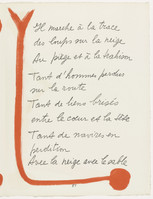 Il marche à la trace
des loups sur la neige
Au piège et à la trahison
Tant d'hommes perdus
sur la route
Tant de liens brisés
entre le cœur et la tête
Tant de navires en
perdition
Avec la neige avec le sable